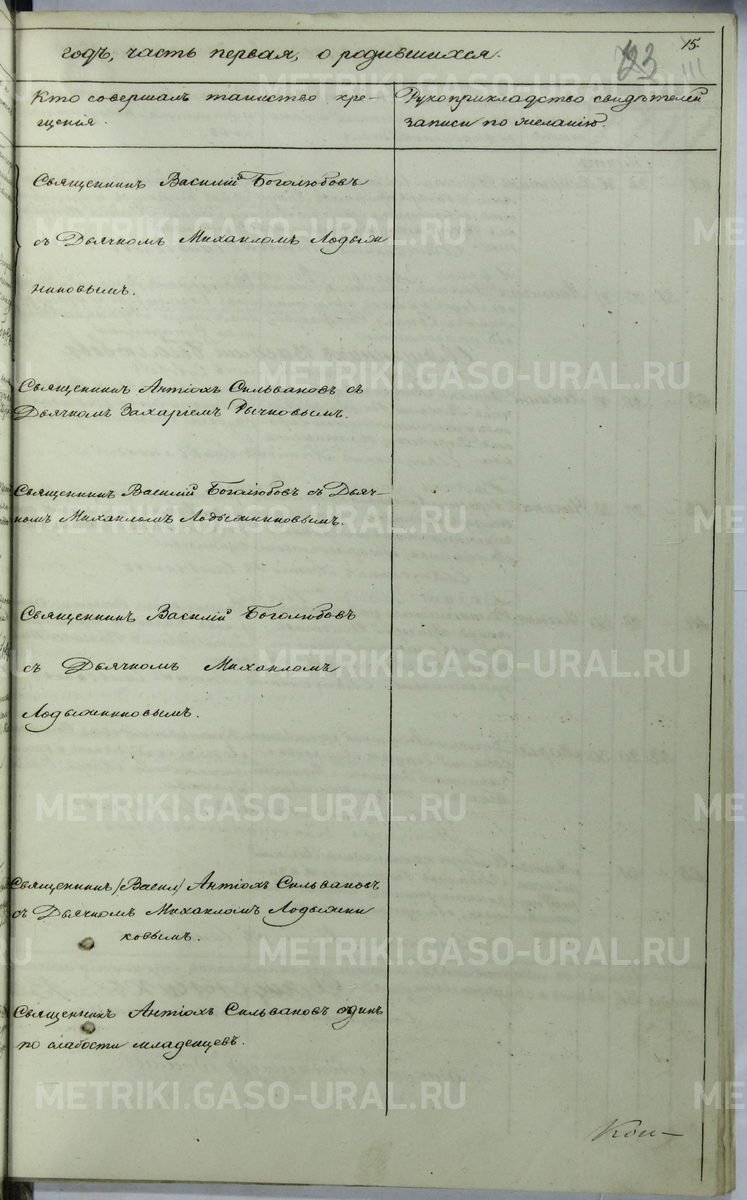 15.
годъ, часть первая, о родившихся.
123
Кто совершалъ таинство кре-
щенія.
Рукоприкладство свидѣтелей
записи по желанію.
Священникъ Василій Боголюбовъ
съ Дьячкомъ Михаиломъ Лодыжи
никовымъ.
Священникъ Антіохъ Сильвановъ съ
Дьячкомъ Захаріемъ Рычковымъ.
Священникъ Василій Боголюбовъ съ Дьяч-
комъ Михаиломъ Лодыжниковымъ.
Священникъ Василій Боголюбовъ
съ Дьячкомъ Михаиломъ
Лодыжниковымъ.
Священникъ /Васил/ Антіохъ Сильвановъ
съ Дьячкомъ Михаиломъ Лодыжни
ковымъ.
Священникъ Антіохъ Сильвановъ одинъ
по слабости младенцевъ.
METRIKI.GASO-URAL.RU